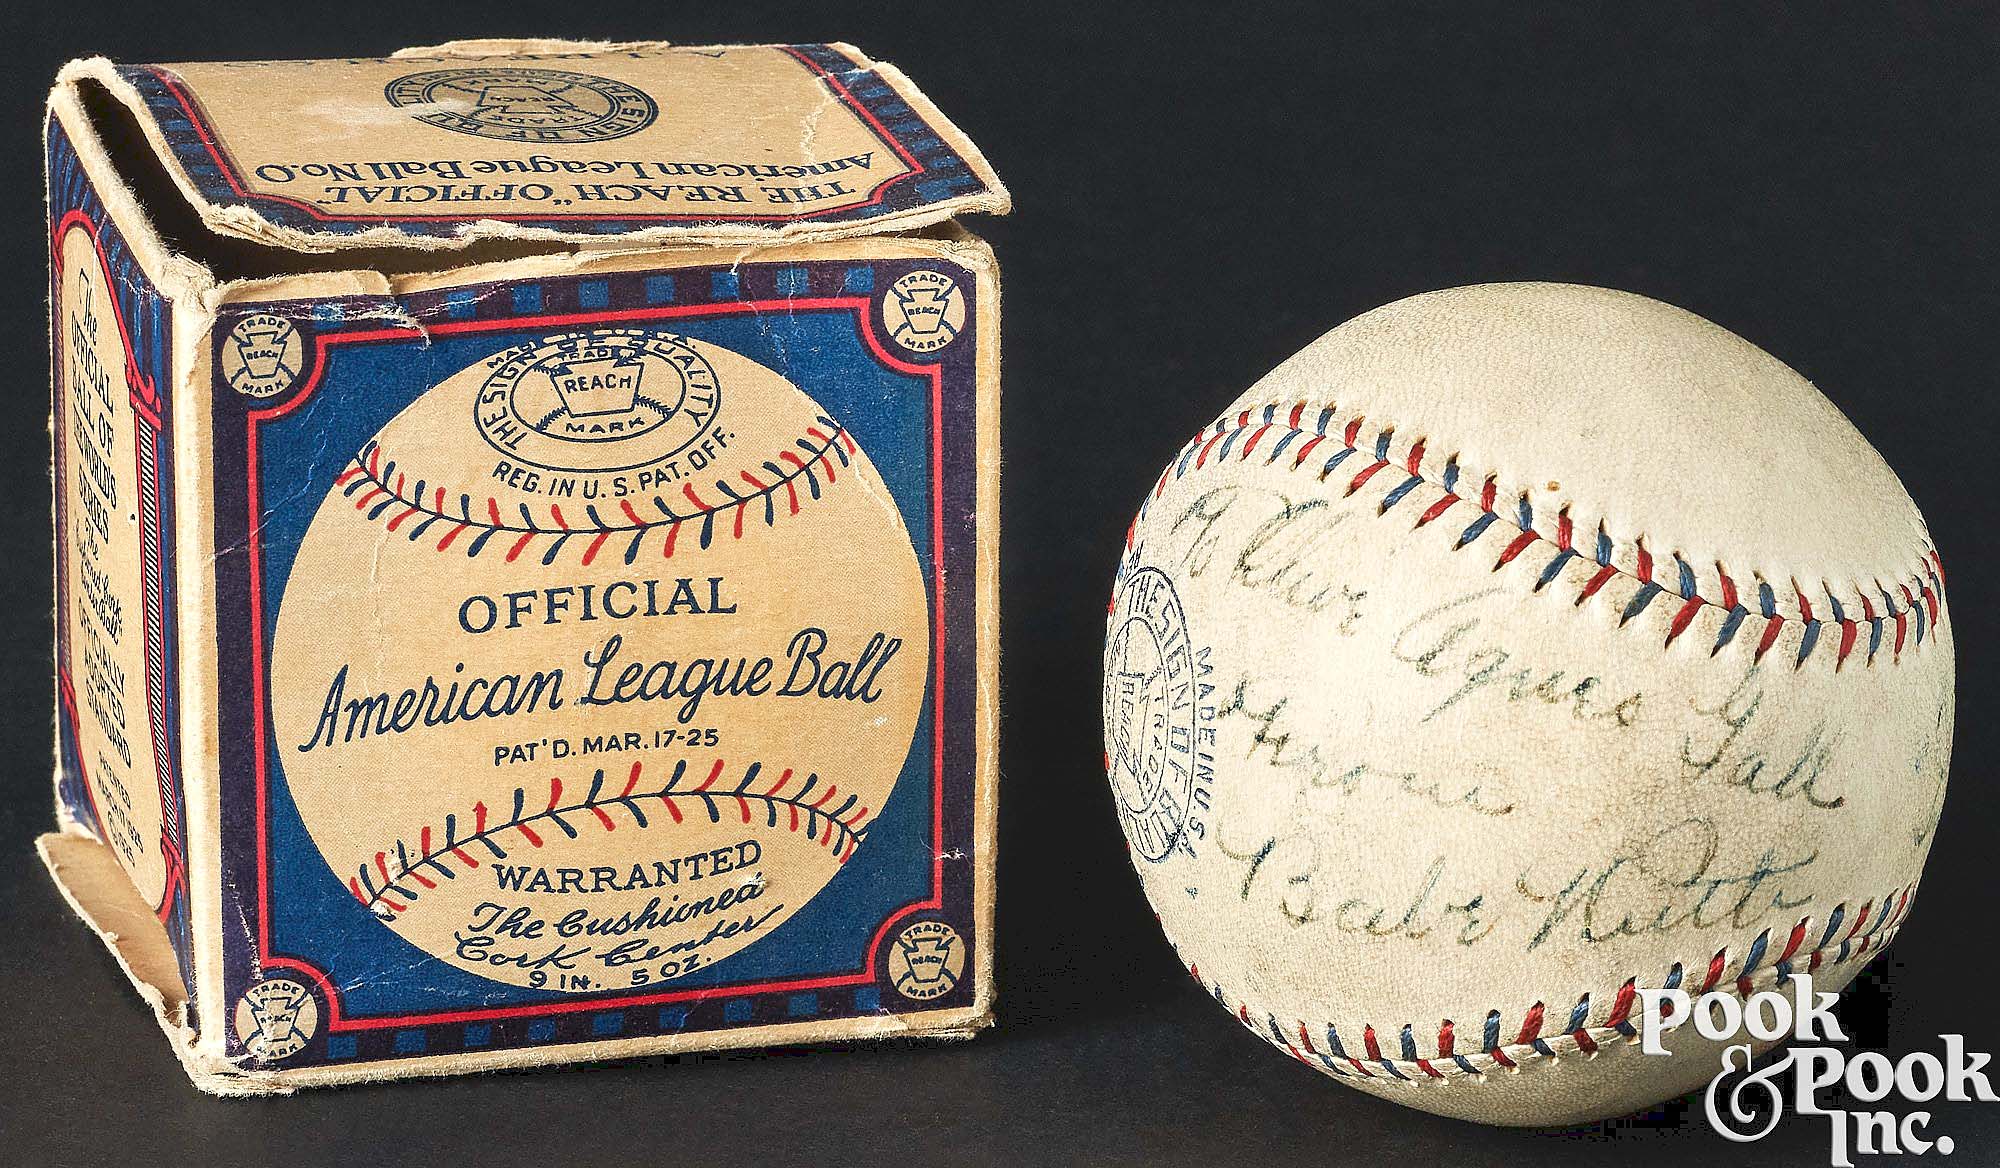 A.J. REACH CO.
THE SIGN OF QUALITY
TRADE
REACH
MARK
THE REACH "OFFICIAL"
American League Ball No. 0
The
OFFICIAL
BALL OF
WORLD'S
SERIES
The
OFFICIALLY
ADOPTED
STANDARD
PATENTED
TRADE
REACH
MARK
TRADE
REACH
MARK
THE SIGN OF QUALITY
TRADE
REACH
MARK
REG. IN U.S. PAT. OFF.
OFFICIAL
American League Ball
PAT'D. MAR. 17-25
WARRANTED
The Cushioned
Cork Center
9 IN. 5 OZ.
TRADE
REACH
MARK
TRADE
REACH
MARK
To
Agnes Gall
From
Babe Ruth
THE SIGN OF
TRADE
REACH
MADE IN U.S.A.
Pook
& Pook
Inc.